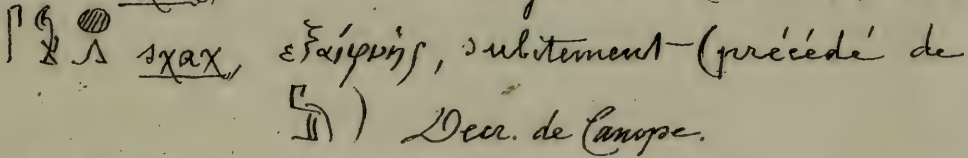 sχaχ, ἐξαίφνης, subitement (précédé de
) Decr. de Canope.